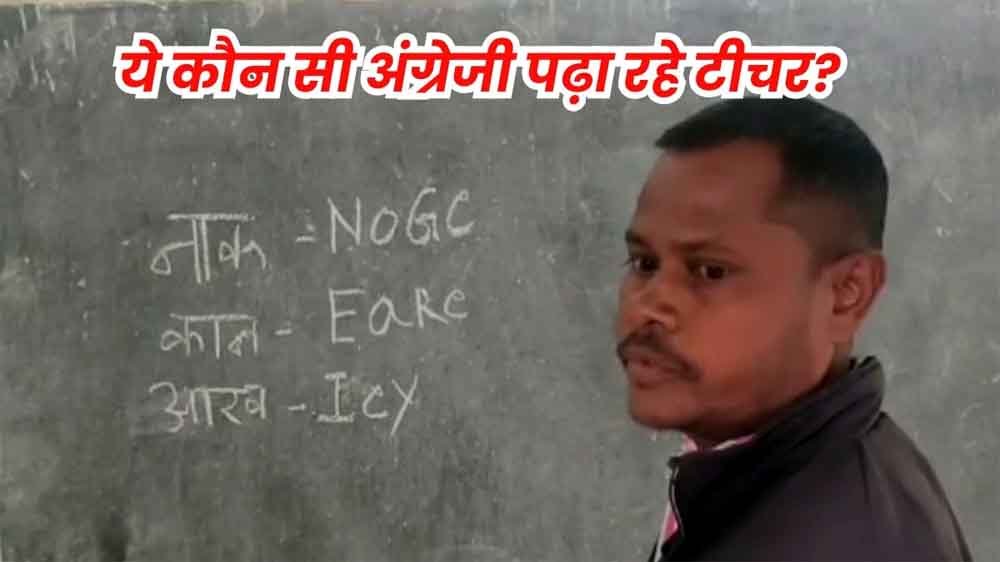 ये कौन सी अंग्रेजी पढ़ा रहे टीचर?
नाक - NoGe
कान - Eare
आख - Iey